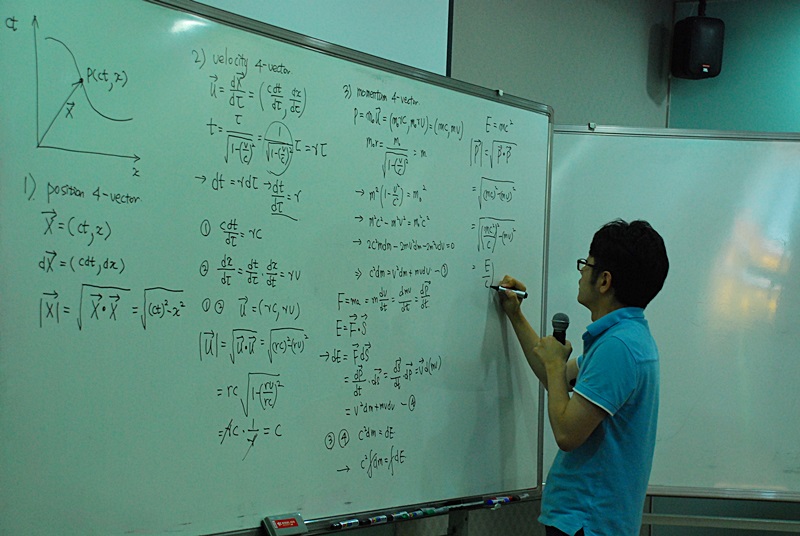 ct
P(ct, x)
X⃗
x
1) position 4-vector
X⃗ = (ct, x)
dX⃗ = (cdt, dx)
|X⃗| = √(X⃗·X⃗) = √((ct)²-x²)
2) velocity 4-vector
u⃗ = dX⃗/dτ = (cdt/dτ, dx/dτ)
t = τ/√(1-(v/c)²) = 1/√(1-(v/c)²) τ = rτ
→ dt = rdτ → dt/dτ = r
① cdt/dτ = rc
② dx/dτ = dt/dτ · dx/dt = rv
①② u⃗ = (rc, rv)
|u⃗| = √(u⃗·u⃗) = √((rc)²-(rv)²)
= rc√(1-(rv/rc)²)
= rc · 1/r = c
3) momentum 4-vector
P = m₀u⃗ = (m₀rc, m₀rv) = (mc, mv)
m₀r = m₀/√(1-(v/c)²) = m
→ m²(1-v²/c²) = m₀²
→ m²c² - m²v² = m₀²c²
→ 2c²mdm - 2mv²dm - 2m²vdv = 0
⇒ c²dm = v²dm + mvdv - ③
F = ma = m dv/dt = dmv/dt = dp⃗/dt
E = F⃗·S⃗
→ dE = F⃗dS⃗
= dp⃗/dt · dS⃗ = dS⃗/dt · dp⃗ = v⃗d(mv)
= v²dm + mvdv - ④
③④ c²dm = dE
→ c²∫dm = ∫dE
E = mc²
|p⃗| = √(p⃗·p⃗)
= √((mc)²-(mv)²)
= √((mc²/c)²-(mv)²)
= E/c